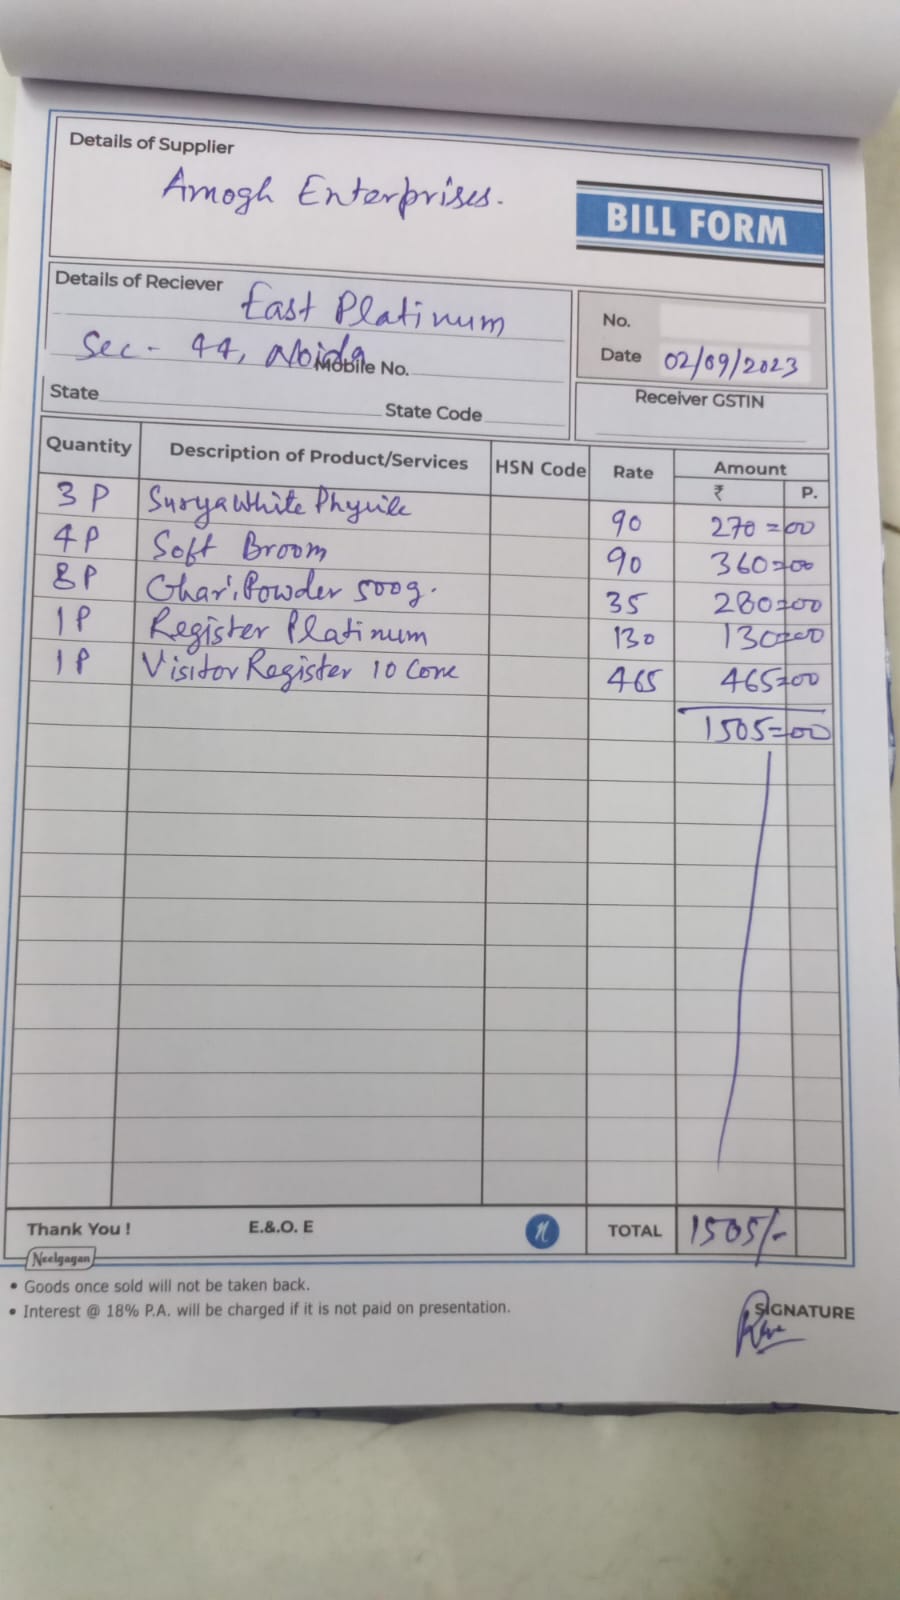 Details of Supplier
Amogh Enterprises.
BILL FORM
Details of Reciever East Platinum
Sec - 44, Noida
Mobile No.
State
State Code
No.
Date 02/09/2023
Receiver GSTIN
Quantity Description of Product/Services HSN Code Rate Amount
₹ P.
3 P Surya White Phyule 90 270=00
4P Soft Broom 90 360=00
8P Ghari Powder 500g. 35 280=00
1P Register Platinum 130 130=00
1P Visitor Register 10 Core 465 465=00
1505=00
Thank You ! E.&.O. E TOTAL 1505/-
Neelgagan
• Goods once sold will not be taken back.
• Interest @ 18% P.A. will be charged if it is not paid on presentation.
SIGNATURE